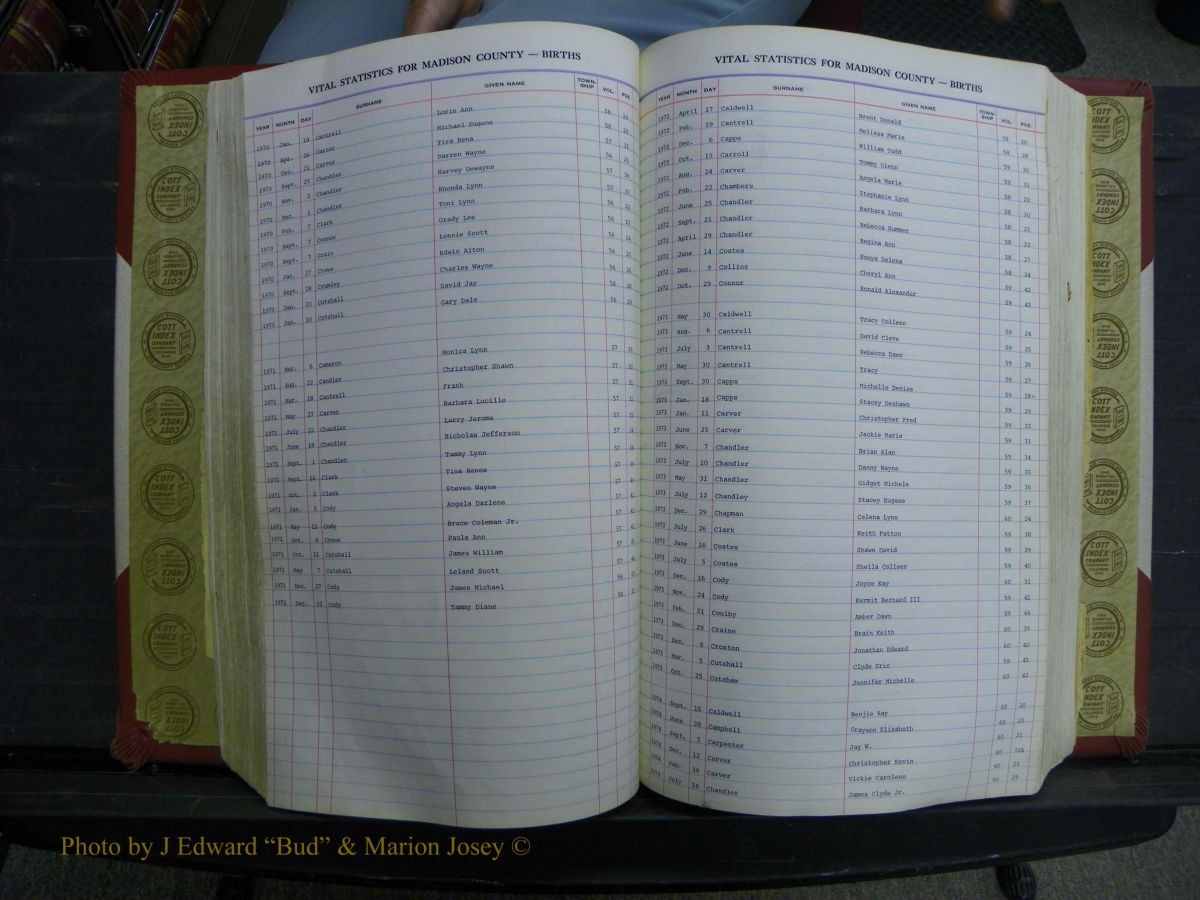 VITAL STATISTICS FOR MADISON COUNTY — BIRTHS
YEAR MONTH DAY SURNAME GIVEN NAME TOWN-SHIP VOL. PGE.
1970 Jan. 18 Cantrell Lorie Ann 56 19
1970 Apr. 26 Carter Michael Eugene 56 20
1970 Dec. 21 Carver Tira Rena 57
1970 Sept. 25 Chandler Darren Wayne 56 21
1970 Nov. 2 Chandler Harvey Dewayne 57
1970 Dec. 1 Chandler Rhonda Lynn 57
1970 Feb. 7 Clark Toni Lynn 56 22
1970 Sept. 7 Connor Grady Lee 56 23
1970 Sept. 7 Crain Lonnie Scott 56 24
1970 Jan. 27 Crowe Edwin Alton 56 25
1970 Sept. 24 Crumley Charles Wayne 56 26
1970 Jan. 20 Cutshall David Jay 56 28
1970 Jan. 10 Cutshall Gary Dale 56 29
1971 Mar. 6 Cameron Monica Lynn 57
1971 Aug. 22 Candler Christopher Shawn 57
1971 Mar. 18 Cantrell Frank 57
1971 May 27 Carver Barbara Lucille 57
1971 July 22 Chandler Larry Jerome 57
1971 June 18 Chandler Nicholas Jefferson 57
1971 Sept. 1 Chandler Tammy Lynn 57
1971 Sept. 16 Clark Tina Renee 57
1971 Oct. 1 Clark Steven Wayne 57
1971 Jan. 5 Cody Angela Darlene 57
1971 May 11 Cody Bruce Coleman Jr. 57
1971 Oct. 6 Crowe Paula Ann 57
1971 Oct. 11 Cutshall James William 57
1971 May 7 Cutshall Leland Scott 57
1971 Dec. 27 Cody James Michael 58
1971 Dec. 23 Cody Tammy Diane 58
VITAL STATISTICS FOR MADISON COUNTY — BIRTHS
YEAR MONTH DAY SURNAME GIVEN NAME TOWN-SHIP VOL. PGE.
1972 April 17 Caldwell Brent Donald 58 26
1972 Feb. 19 Cantrell Melissa Marie 58 28
1972 Dec. 6 Capps William Todd 59 30
1972 Oct. 15 Carroll Tommy Glenn 59 31
1972 Aug. 24 Carver Angela Marie 58 23
1972 Feb. 22 Chambers Stephanie Lynn 58 30
1972 June 25 Chandler Barbara Lynn 58 25
1972 Sept. 21 Chandler Rebecca Summer 58 22
1972 April 29 Chandler Regina Ann 58 27
1972 June 14 Coates Sonya Delena 58 24
1972 Dec. 9 Collins Cheryl Ann 59 42
1972 Oct. 29 Connor Ronald Alexander 59 43
1973 May 30 Caldwell Tracy Colleen 59 24
1973 Aug. 6 Cantrell David Cleve 59 25
1973 July 3 Cantrell Rebecca Dawn 59 26
1973 May 30 Cantrell Tracy 59 27
1973 Sept. 30 Capps Michelle Denise 59 28
1973 Jan. 18 Capps Stacey Deshawn 59 29
1973 Jan. 11 Carver Christopher Fred 59 32
1973 June 25 Carver Jackie Marie 59 33
1973 Nov. 7 Chandler Brian Alan 59 34
1973 July 10 Chandler Danny Wayne 59 35
1973 May 31 Chandler Gidget Michele 59 36
1973 July 12 Chandley Stacey Eugene 59 37
1973 Dec. 29 Chapman Celena Lynn 60 24
1973 July 26 Clark Keith Patton 59 38
1973 June 16 Coates Shawn David 59 39
1973 July 5 Coates Sheila Colleen 59 40
1973 Dec. 16 Cody Joyce Kay 60 31
1973 Nov. 24 Cody Kermit Bernard III 59 41
1973 Feb. 21 Coulby Amber Dawn 59 44
1973 Dec. 29 Craine Brain Keith 60 39
1973 Dec. 9 Croxton Jonathan Edward 60 40
1973 Mar. 5 Cutshall Clyde Eric 58 45
1973 Oct. 25 Cutshaw Jennifer Michelle 60 42
1974 Sept. 15 Caldwell Benjie Ray 60 20
1974 June 28 Campbell Grayson Elizabeth 60
1974 Sept. 5 Carpenter Jay W. 60 21
1974 Dec. 12 Carver Christopher Kevin 60 22A
1974 Feb. 16 Carver Vickie Caroleen 60 22
1974 July 16 Chandler James Clyde Jr. 60 25
COTT INDEX COMPANY COLUMBUS OHIO
Photo by J Edward “Bud” & Marion Josey ©